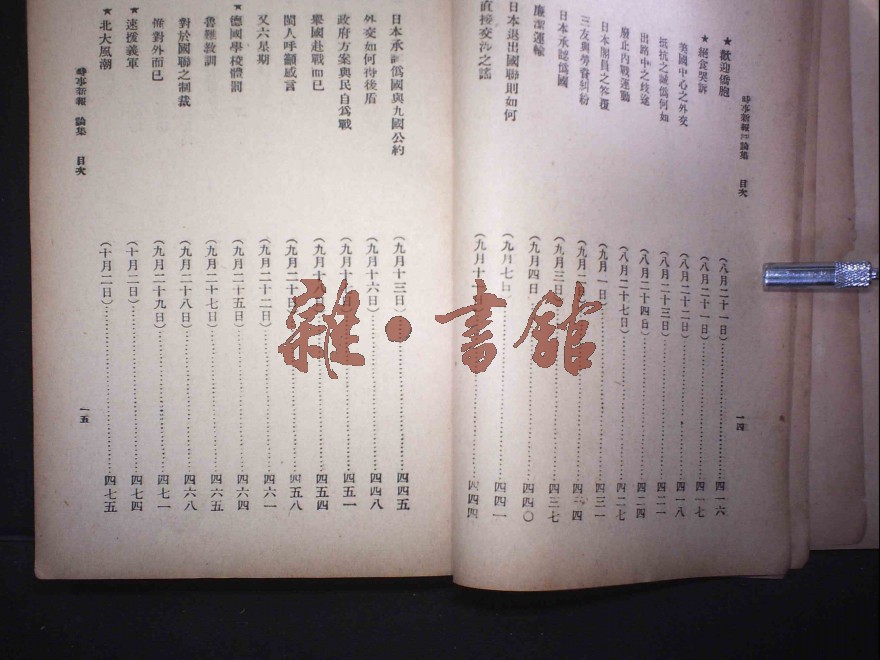 時事新報評論集 目次
一四
★歡迎僑胞(八月二十一日)四一六
★絕食哭訴(八月二十一日)四一七
美國中心之外交(八月二十二日)四一八
抵抗之誠僞何如(八月二十三日)四二一
出路中之歧途(八月二十四日)四二四
廢止內戰運動(八月二十七日)四二七
日本閣員之答覆(九月一日)四三一
三友與勞資糾紛(九月 日)四三四
日本承認僞國(九月三日)四三七
廉潔運輸(九月四日)四四〇
日本退出國聯則如何(九月七日)四四一
直接交涉之謠(九月十 日)四四四
日本承認僞國與九國公約(九月十三日)四四五
外交如何待後盾(九月十六日)四四八
政府方案與民自爲戰(九月十 日)四五一
舉國赴戰而已(九月十八日)四五四
閩人呼籲感言(九月二十日)四五八
又六星期(九月二十二日)四六一
★德國學校體罰(九月二十五日)四六四
魯難教訓(九月二十七日)四六五
對於國聯之制裁(九月二十八日)四六八
僅對外而已(九月二十九日)四七一
★速援義軍(十月二日)四七四
★北大風潮(十月二日)四七五
時事新報 論集 目次
一五
雜·書館